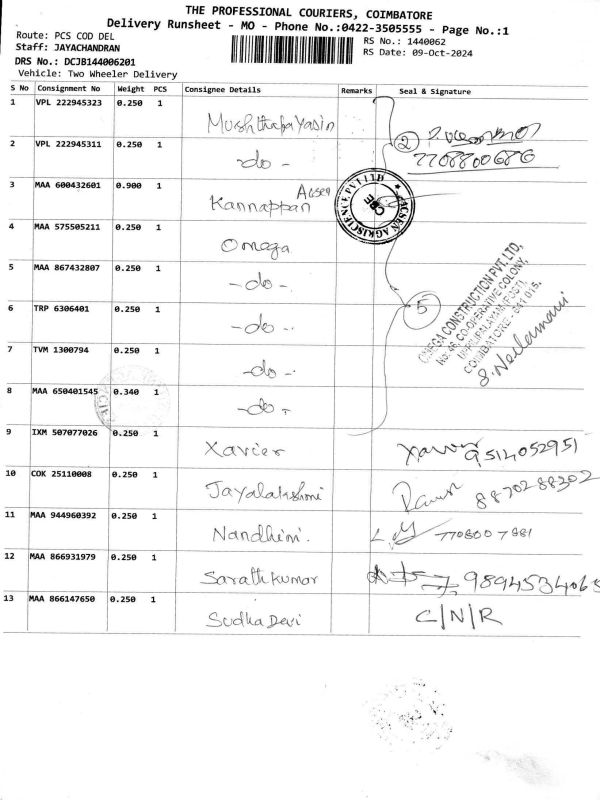 THE PROFESSIONAL COURIERS, COIMBATORE
Delivery Runsheet - MO - Phone No.:0422-3505555 - Page No.:1
Route: PCS COD DEL
Staff: JAYACHANDRAN
DRS No.: DCJB144006201
Vehicle: Two Wheeler Delivery
RS No.: 1440062
RS Date: 09-Oct-2024
S No Consignment No Weight PCS Consignee Details Remarks Seal & Signature
1 VPL 222945323 0.250 1 Mushthafa Yasin
2 VPL 222945311 0.250 1 -do- 2
7708800686
3 MAA 600432601 0.900 1 Kannappan
ACSEN AGRISCIENCE PVT LTD
CBE
4 MAA 575505211 0.250 1 Omega
5 MAA 867432807 0.250 1 -do-
6 TRP 6306401 0.250 1 -do- 5
OMEGA CONSTRUCTION PVT. LTD,
No.46, CO-OPERATIVE COLONY,
UPPILIPALAYAM (POST),
COIMBATORE - 641 015.
S. Neelamani
7 TVM 1300794 0.250 1 -do-
8 MAA 650401545 0.340 1 -do-
9 IXM 507077026 0.250 1 Xavier Xavier 9514052951
10 COK 25110008 0.250 1 Jayalakshmi 8870288302
11 MAA 944960392 0.250 1 Nandhini. 7708007981
12 MAA 866931979 0.250 1 Sarathkumar 9894534065
13 MAA 866147650 0.250 1 Sudha Devi C/N/R